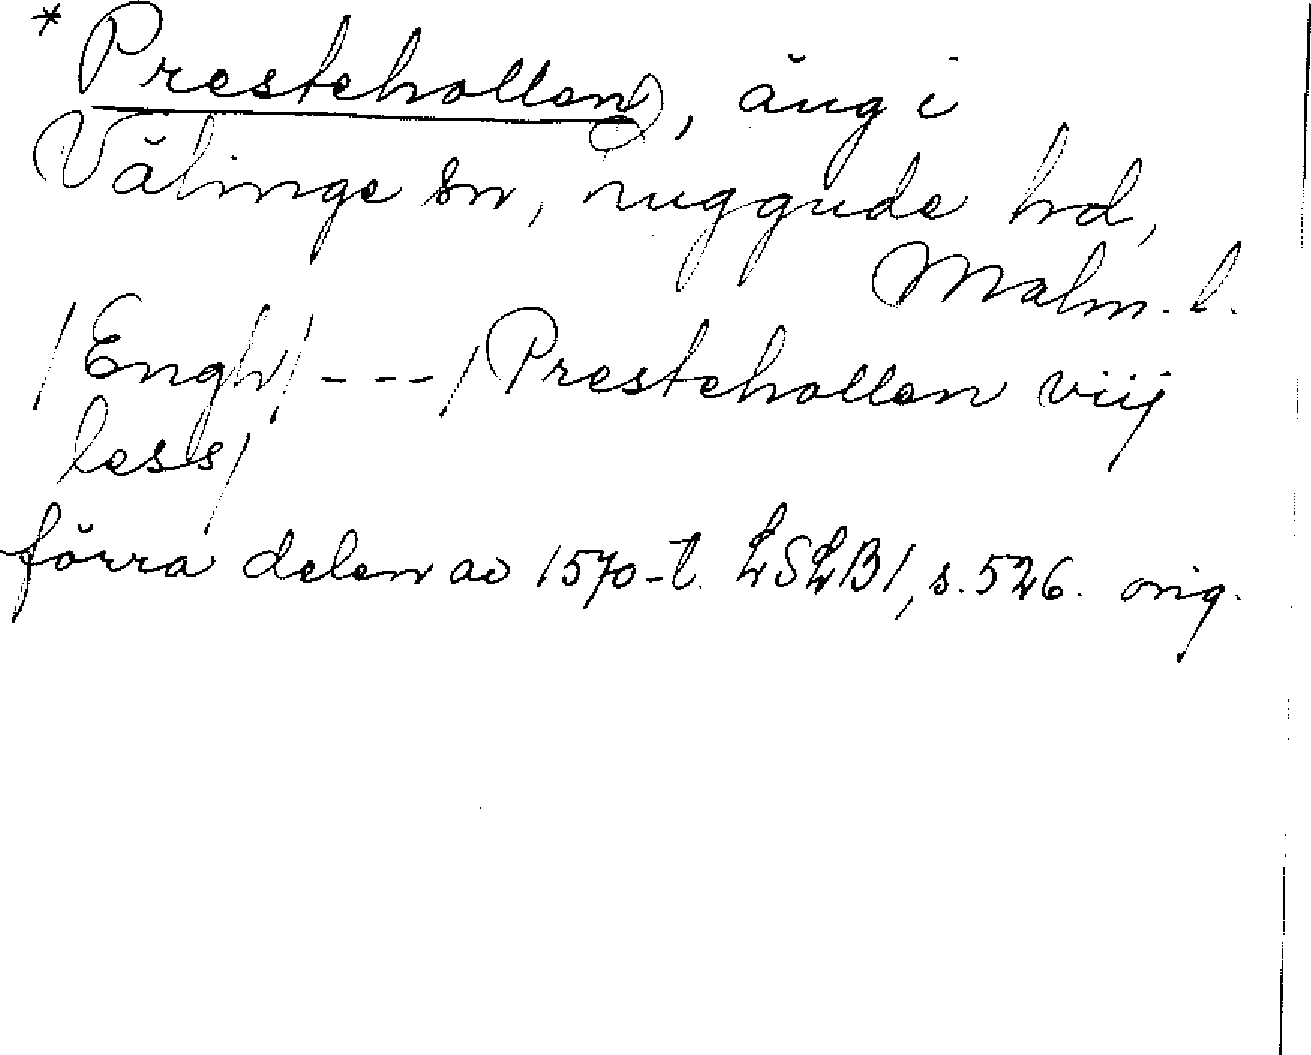 * Prestehollen, äng i
Välinge sn, ruggude hd,
Malm. l.
/Engh/ - - - / Prestehollen viij
less/
förra delen av 1570-t. LSLB1, s. 526. orig.